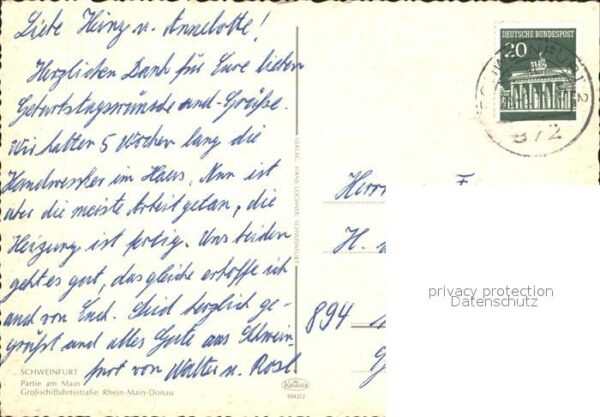 Liebe Heinz u. Annelotte!
Herzlichen Dank für Eure lieben
Geburtstagswünsche und -Grüße.
Wir hatten 5 Wochen lang die
Handwerker im Haus. Nun ist
aber die meiste Arbeit getan, die
Heizung ist fertig. Uns beiden
geht es gut, das gleiche erhoffe ich
auch von Euch. Seid herzlich ge-
grüßt und alles Gute aus Schwein
furt von Walter u. Rosl
SCHWEINFURT
Partie am Main
Großschiffahrtsstraße Rhein-Main-Donau
KRÜGER
1042/2
DEUTSCHE BUNDESPOST
20
SCHWEINFURT 2
872
Herrn
H.
894
privacy protection
Datenschutz